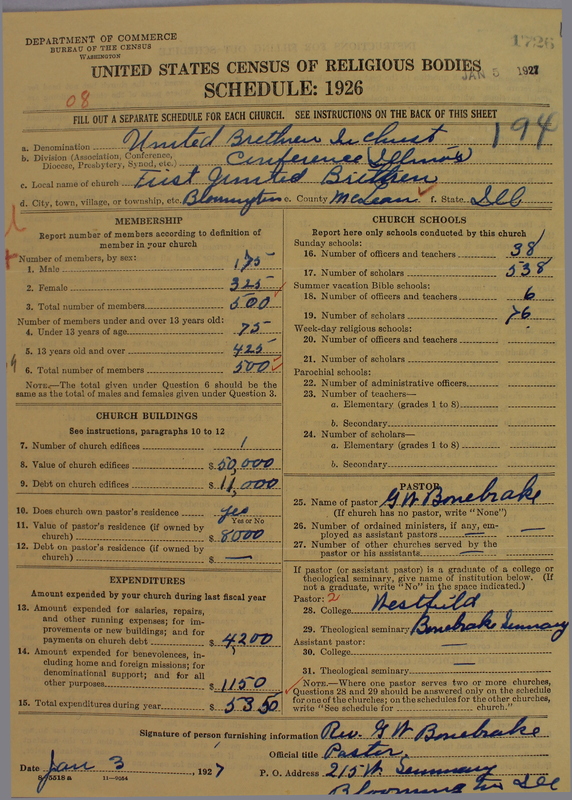 DEPARTMENT OF COMMERCE
BUREAU OF THE CENSUS
WASHINGTON
1726
UNITED STATES CENSUS OF RELIGIOUS BODIES
JAN 5 1927
SCHEDULE: 1926
08
FILL OUT A SEPARATE SCHEDULE FOR EACH CHURCH. SEE INSTRUCTIONS ON THE BACK OF THIS SHEET
194
a. Denomination United Brethren In Christ
b. Division (Association, Conference, Diocese, Presbytery, Synod, etc.) Conference (Illinois
c. Local name of church First United Brethren
d. City, town, village, or township, etc. Bloomington e. County McLean f. State Ill
MEMBERSHIP
Report number of members according to definition of
member in your church
Number of members, by sex:
1. Male 175
2. Female 325
3. Total number of members 500
Number of members under and over 13 years old:
4. Under 13 years of age 75
5. 13 years old and over 425
6. Total number of members 500
NOTE.—The total given under Question 6 should be
same as the total of males and females given under Question 3.
CHURCH BUILDINGS
See instructions, paragraphs 10 to 12
7. Number of church edifices 1
8. Value of church edifices $ 50,000
9. Debt on church edifices $ 11,000
10. Does church own pastor's residence yes
Yes or No
11. Value of pastor's residence (if owned by
church) $ 8000
12. Debt on pastor's residence (if owned by
church) $ —
EXPENDITURES
Amount expended by your church during last fiscal year
13. Amount expended for salaries, repairs,
and other running expenses; for improvements
or new buildings; and for
payments on church debt $ 4200
14. Amount expended for benevolences, including
home and foreign missions; for
denominational support; and for all
other purposes $ 1150
15. Total expenditures during year $ 5350
CHURCH SCHOOLS
Report here only schools conducted by this church
Sunday schools:
16. Number of officers and teachers 38
17. Number of scholars 538
Summer vacation Bible schools:
18. Number of officers and teachers 6
19. Number of scholars 76
Week-day religious schools:
20. Number of officers and teachers
21. Number of scholars
Parochial schools:
22. Number of administrative officers
23. Number of teachers—
a. Elementary (grades 1 to 8)
b. Secondary
24. Number of scholars—
a. Elementary (grades 1 to 8)
b. Secondary
PASTOR
25. Name of pastor G W Bonebrake
(If church has no pastor, write "None")
26. Number of ordained ministers, if any, employed
as assistant pastors —
27. Number of other churches served by the
pastor or his assistants —
If pastor (or assistant pastor) is a graduate of a college or
theological seminary, give name of institution below. (If
not a graduate, write "No" in the space indicated.)
Pastor: 2
28. College Westfield
29. Theological seminary Bonebrake Seminary
Assistant pastor:
30. College —
31. Theological seminary —
NOTE.—Where one pastor serves two or more churches,
Questions 28 and 29 should be answered only on the schedule
for one of the churches; on the schedules for the other churches,
write "See schedule for church."
Signature of person furnishing information Rev. G W Bonebrake
Official title Pastor
Date Jan 3, 1927 P. O. Address 215 W. Seminary
8-5518a 11-9264 Bloomington Ill